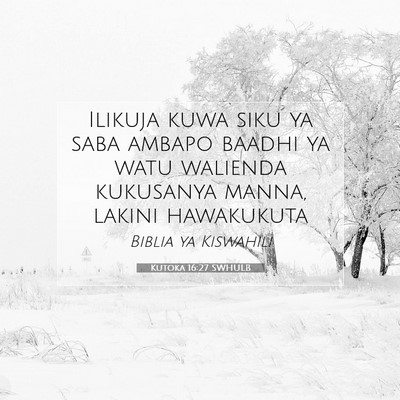 Ilikuja kuwa siku ya
saba ambapo baadhi ya
watu walienda
kukusanya manna,
lakini hawakukuta
Biblia ya Kiswahili
Kutoka 16:27 SWHULB